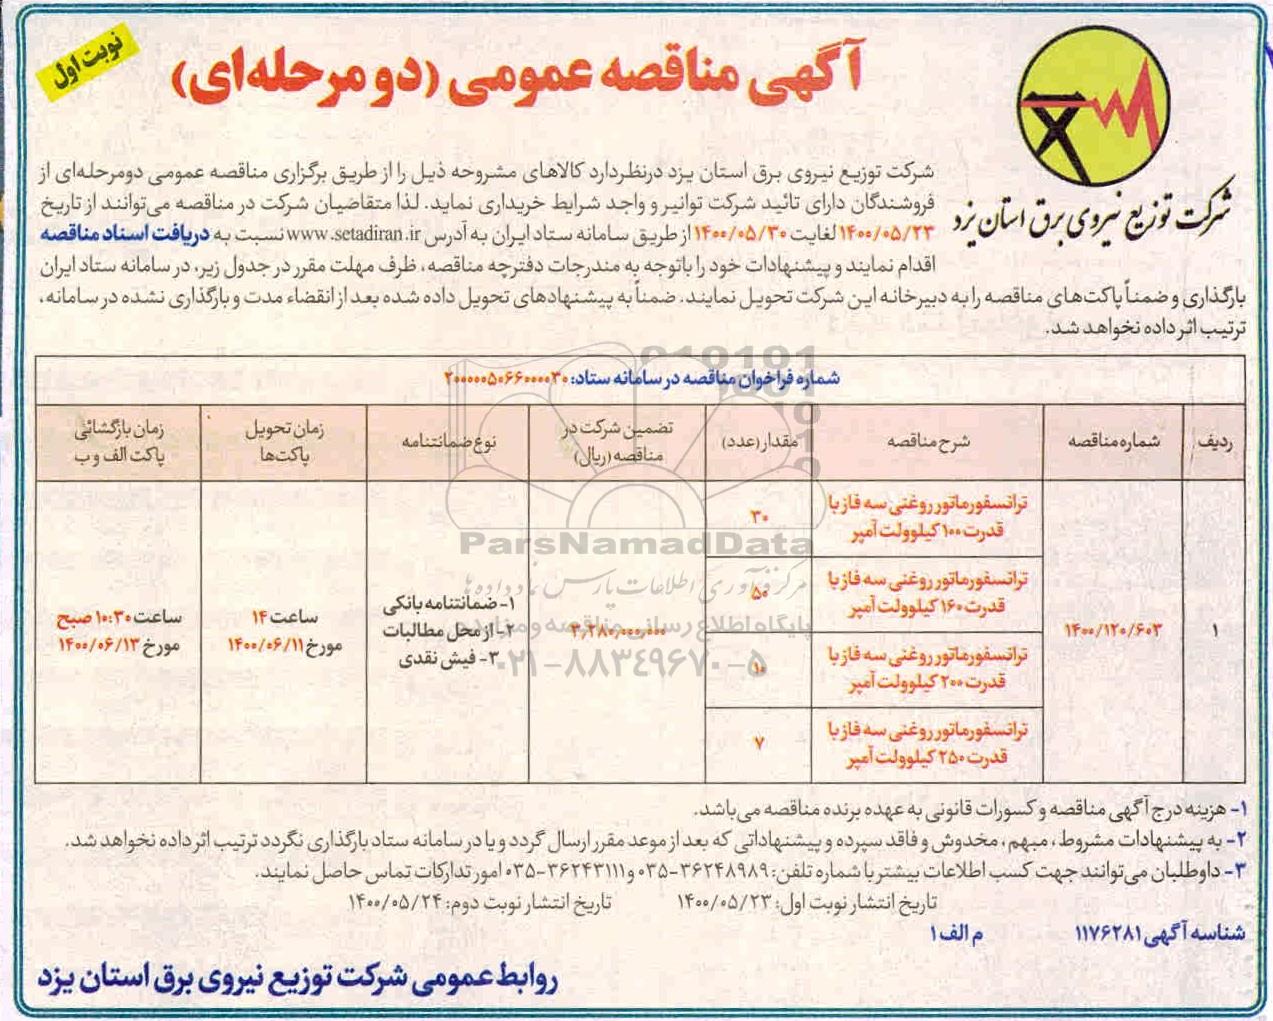 نوبت اول
آگهی مناقصه عمومی (دو مرحله‌ای)
شرکت توزیع نیروی برق استان یزد
شرکت توزیع نیروی برق استان یزد درنظر دارد کالاهای مشروحه ذیل را از طریق برگزاری مناقصه عمومی دومرحله‌ای از
فروشندگان دارای تائید شرکت توانیر و واجد شرایط خریداری نماید. لذا متقاضیان شرکت در مناقصه می‌توانند از تاریخ
۱۴۰۰/۰۵/۲۳ لغایت ۱۴۰۰/۰۵/۳۰ از طریق سامانه ستاد ایران به آدرس www.setadiran.ir نسبت به دریافت اسناد مناقصه
اقدام نمایند و پیشنهادات خود را باتوجه به مندرجات دفترچه مناقصه، ظرف مهلت مقرر در جدول زیر، در سامانه ستاد ایران
بارگذاری و ضمناً پاکت‌های مناقصه را به دبیرخانه این شرکت تحویل نمایند. ضمناً به پیشنهادهای تحویل داده شده بعد از انقضاء مدت و بارگذاری نشده در سامانه،
ترتیب اثر داده نخواهد شد.
شماره فراخوان مناقصه در سامانه ستاد: ۲۰۰۰۰۰۵۰۶۶۰۰۰۰۳۰
ردیف
شماره مناقصه
شرح مناقصه
مقدار (عدد)
تضمین شرکت در
مناقصه (ریال)
نوع ضمانتنامه
زمان تحویل
پاکت‌ها
زمان بازگشائی
پاکت الف و ب
۱
۱۴۰۰/۱۲۰/۶۰۳
ترانسفورماتور روغنی سه فاز با
قدرت ۱۰۰ کیلوولت آمپر
۳۰
ترانسفورماتور روغنی سه فاز با
قدرت ۱۶۰ کیلوولت آمپر
۵۰
ترانسفورماتور روغنی سه فاز با
قدرت ۲۰۰ کیلوولت آمپر
۱۰
ترانسفورماتور روغنی سه فاز با
قدرت ۲۵۰ کیلوولت آمپر
۷
۳,۲۸۰,۰۰۰,۰۰۰
۱- ضمانتنامه بانکی
۲- از محل مطالبات
۳- فیش نقدی
ساعت ۱۴
مورخ ۱۴۰۰/۰۶/۱۱
ساعت ۱۰:۳۰ صبح
مورخ ۱۴۰۰/۰۶/۱۳
ParsNamadData
مرکز فرآوری اطلاعات پارس نماد داده‌ها
پایگاه اطلاع رسانی مناقصه و مزایده
۰۲۱-۸۸۳۴۹۶۷۰-۵
۱- هزینه درج آگهی مناقصه و کسورات قانونی به عهده برنده مناقصه می‌باشد.
۲- به پیشنهادات مشروط، مبهم، مخدوش و فاقد سپرده و پیشنهاداتی که بعد از موعد مقرر ارسال گردد و یا در سامانه ستاد بارگذاری نگردد ترتیب اثر داده نخواهد شد.
۳- داوطلبان می‌توانند جهت کسب اطلاعات بیشتر با شماره تلفن: ۳۶۲۴۸۹۸۹-۰۳۵ و ۳۶۲۴۳۱۱۱-۰۳۵ امور تدارکات تماس حاصل نمایند.
تاریخ انتشار نوبت اول: ۱۴۰۰/۰۵/۲۳ تاریخ انتشار نوبت دوم: ۱۴۰۰/۰۵/۲۴
شناسه آگهی ۱۱۷۶۲۸۱ م الف ۱
روابط عمومی شرکت توزیع نیروی برق استان یزد